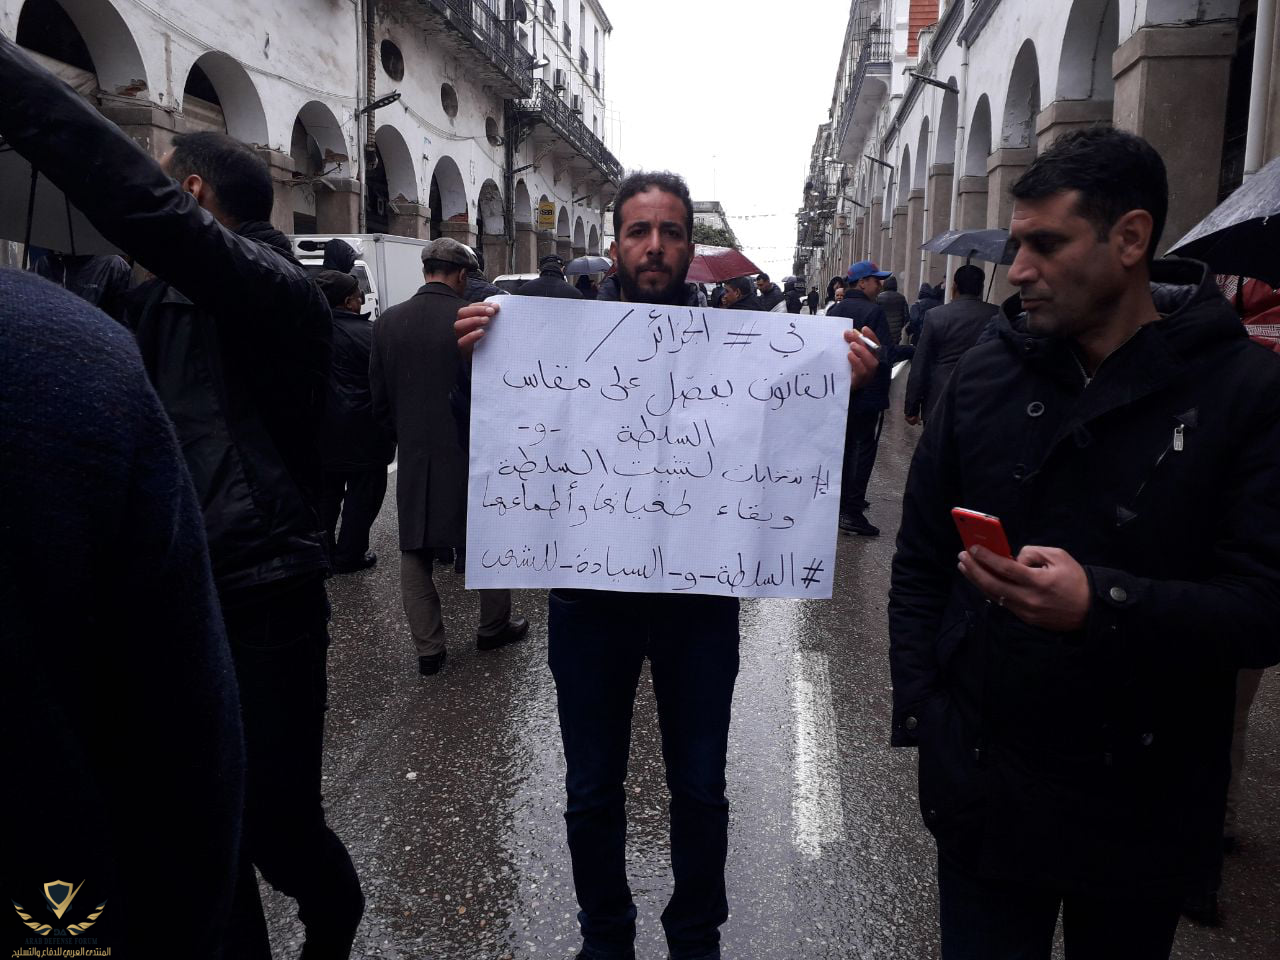 في # الجزائر /
القانون يفصّل على مقاس
السلطة -و-
إنتخابات لتثبيت السلطة
وبقاء طغيانها وأطماعها
# السلطة-و-السيادة-للشعب
ARAB DEFENSE FORUM
المنتدى العربي للدفاع والتسليح